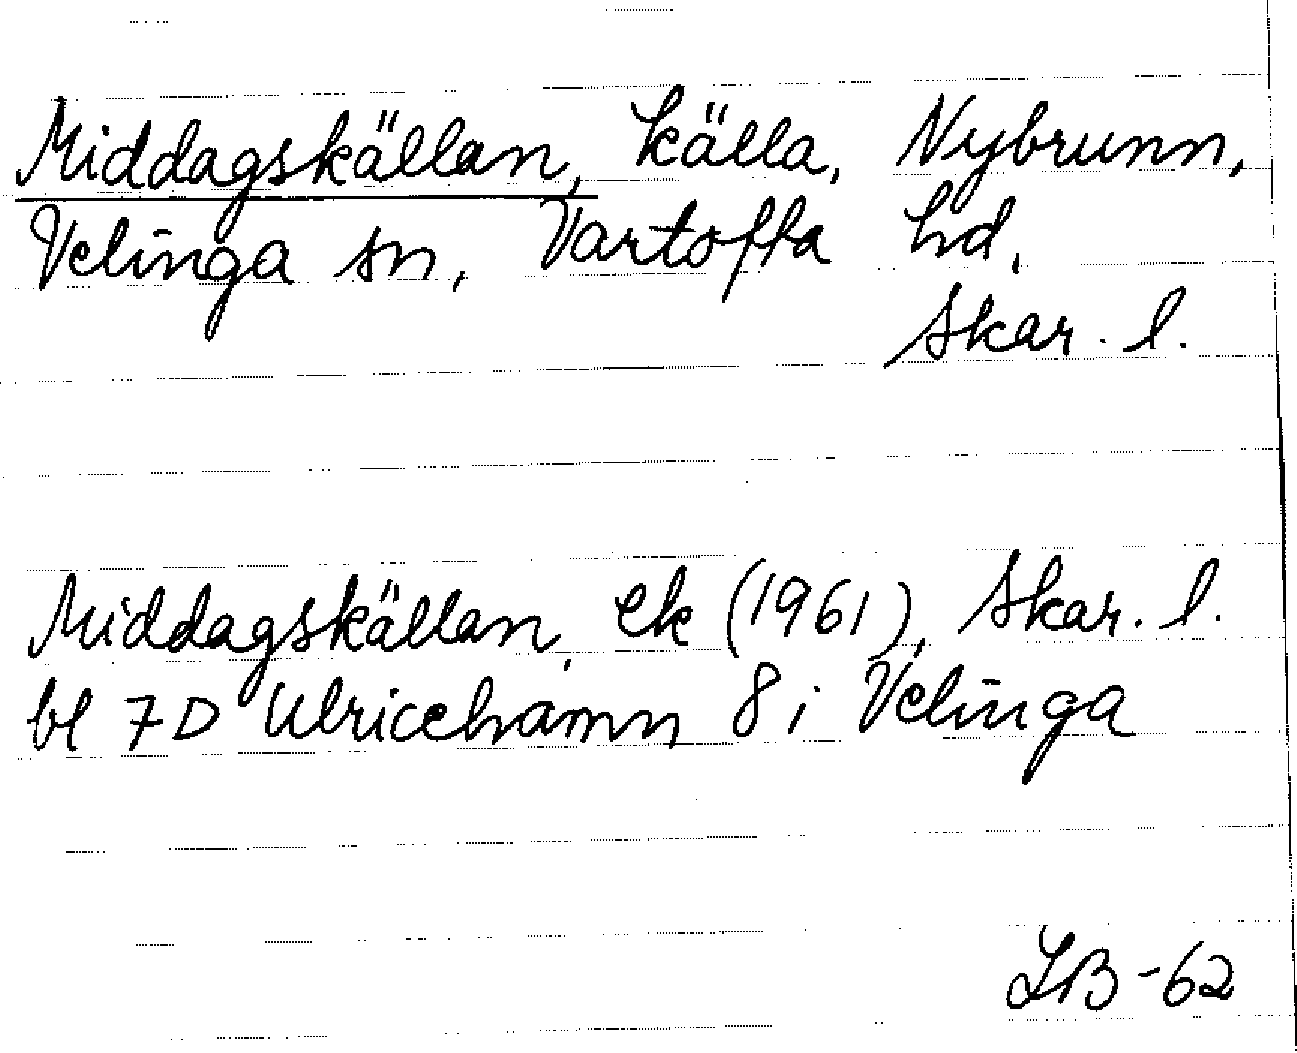 Middagskällan, källa, Nybrunn,
Velinga sn, Vartofta hd,
Skar. l.
Middagskällan, ek (1961), Skar. l.
bl 7D Ulricehamn 8 i Velinga
LB-62